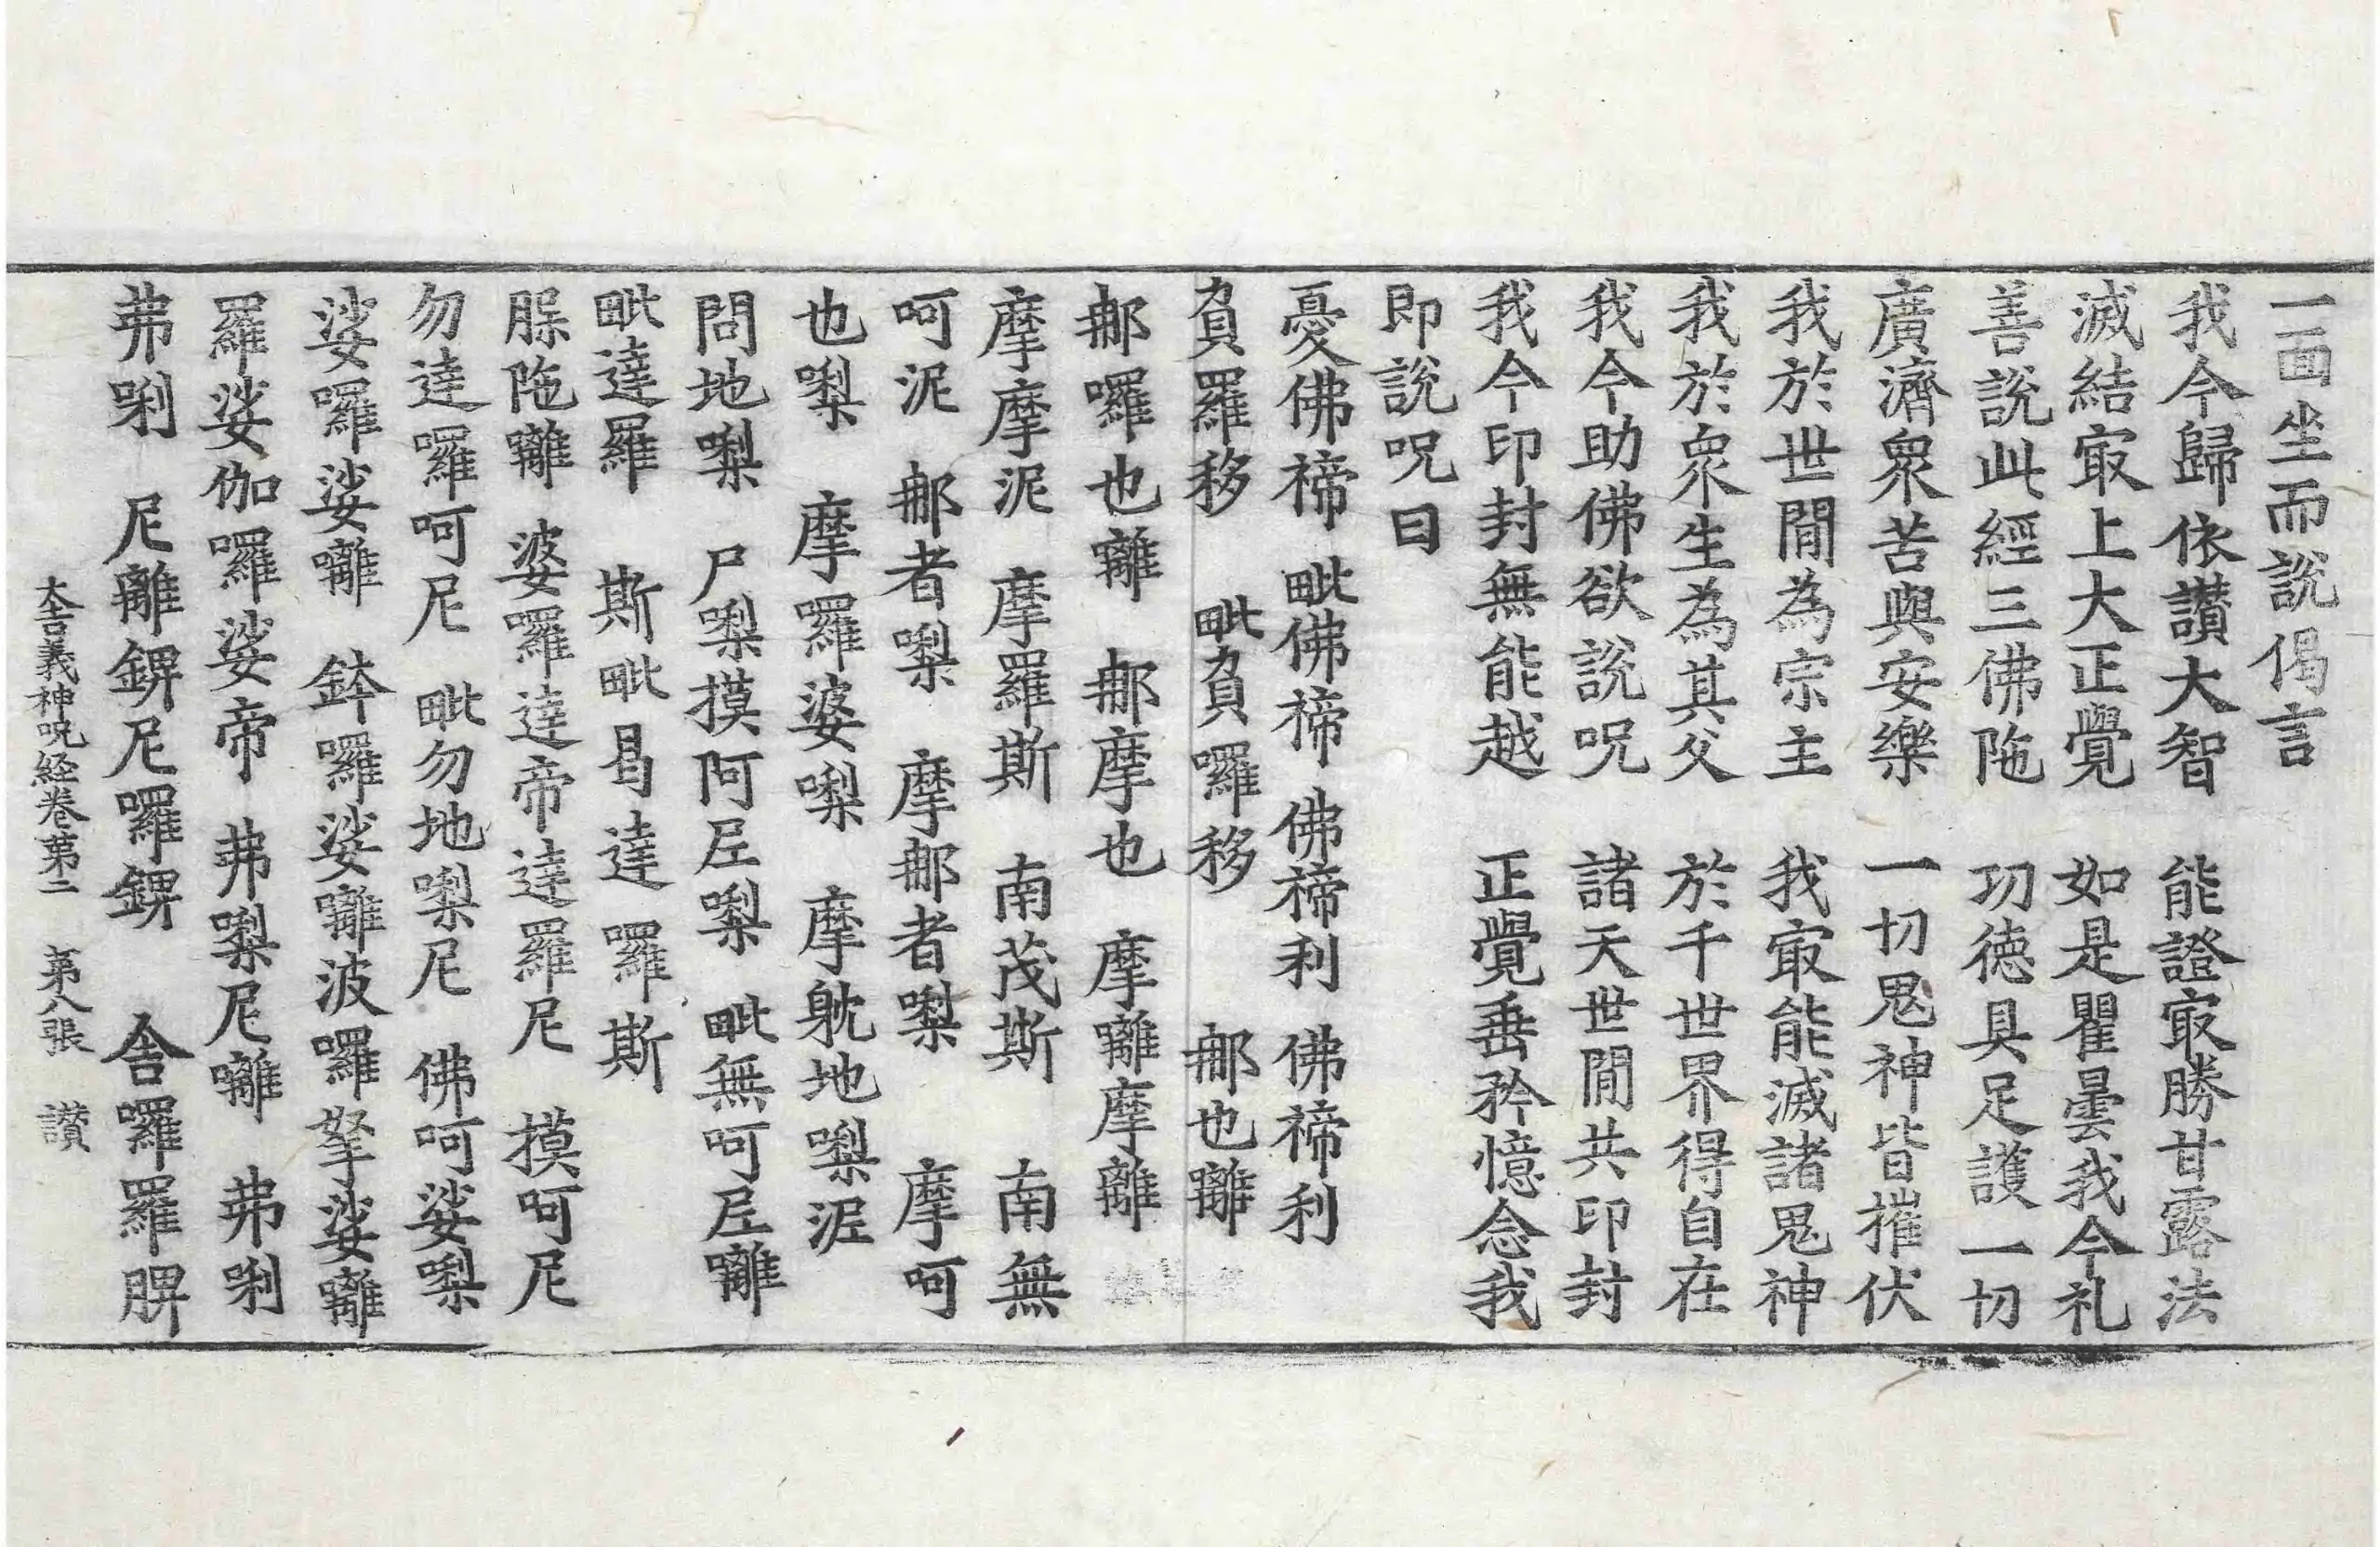 一面坐而説偈言
我今歸依讃大智　能證㝡勝甘露法
滅結㝡上大正覺　如是瞿曇我今礼
善説此經三佛陁　功德具足護一切
廣濟衆苦與安樂　一切鬼神皆摧伏
我於世間為宗主　我㝡能滅諸鬼神
我於衆生為其父　於千世界得自在
我今助佛欲説呪　諸天世間共印封
我今印封無能越　正覺垂矜憶念我
即説呪曰
憂佛禘　毗佛禘　佛禘利　佛禘利
負羅移　毗負囉移　那也囄
那囉也囄　那摩也　摩囄摩囄
摩摩泥　摩羅斯　南茂斯　南無
呵泥　那者㗚　摩那者㗚　摩呵
也㗚　摩囉婆㗚　摩躭地㗚泥
問地㗚　尸㗚摸阿㞐㗚　毗無呵㞐囄
毗達羅　斯毗㫐達囉斯
脲陁囄　婆囉達帝達羅尼　摸呵尼
勿達囉呵尼　毗勿地㗚尼　佛呵娑㗚
娑囉娑囄　鉢囉娑囄波囉拏娑囄
羅娑伽囉娑帝　弗㗚尼囄　弗唎
弗唎　尼離錍尼囉錍　舍囉羅脾
大吉義神呪経卷第二　第八張　讃